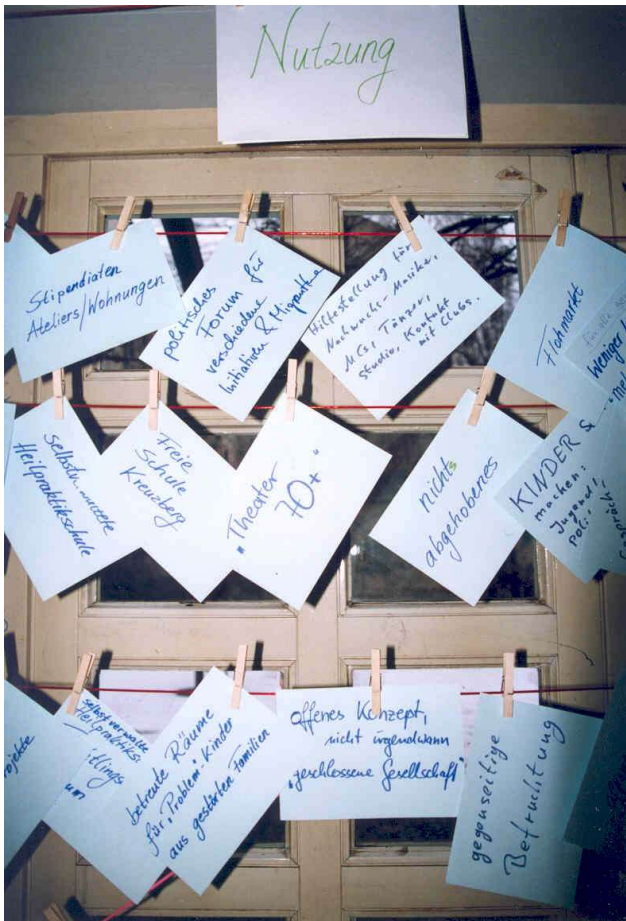 Nutzung
Stipendiaten
Ateliers/Wohnungen
politisches
Forum für
verschiedene
Initiativen & Migranten
Hilfestellung für
Nachwuchs-Musiker,
MCs, Tänzer,
Studio, Kontakt
mit Clubs.
Flohmarkt
Weniger
Heilpraktikschule
Freie
Schule
Kreuzberg
"Theater
70+"
nichts
abgehobenes
KINDER &
machen:
Jugend,
ojekte
selbstverwalte
Heilpraktiks.
tlings
um
betreute Räume
für "Problem"-Kinder
aus gestörten Familien
offenes Konzept,
nicht irgendwann
"geschlossene Gesellschaft"
gegenseitige
Befruchtung